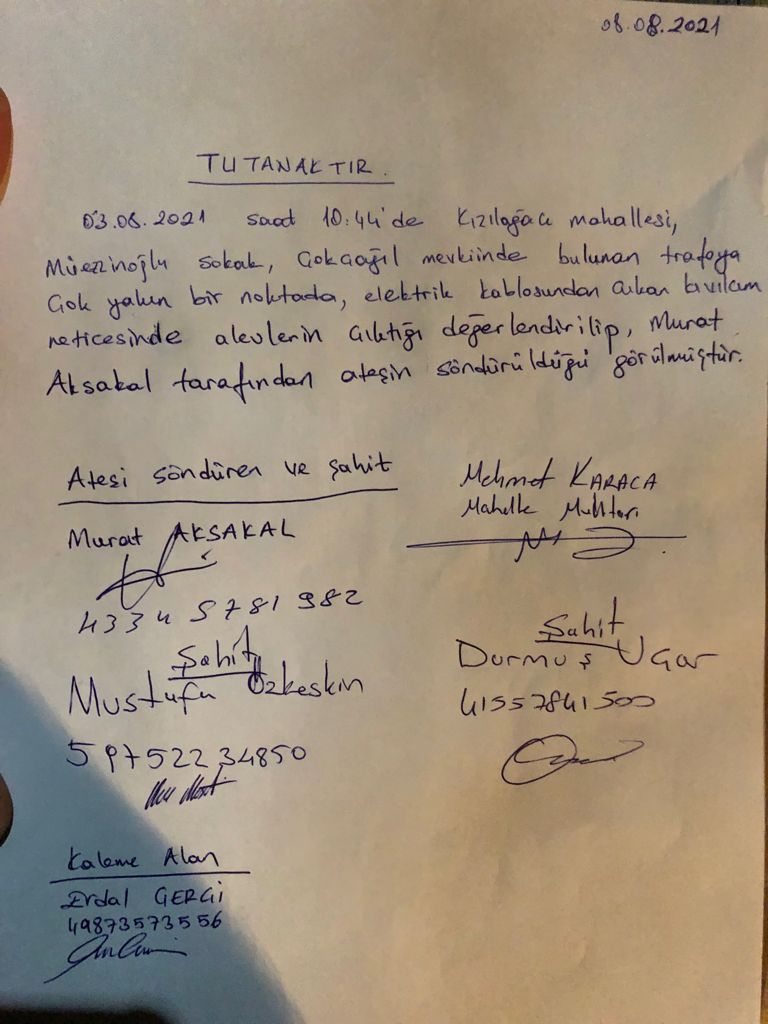 08.08.2021
TUTANAKTIR.
03.08.2021 saat 10:44'de Kızılağaç mahallesi,
Müezzinoğlu sokak, Gökçağıl mevkiinde bulunan trafoya
çok yakın bir noktada, elektrik kablosundan çıkan kıvılcım
neticesinde alevlerin çıktığı değerlendirilip, Murat
Aksakal tarafından ateşin söndürüldüğü görülmüştür.
Ateşi söndüren ve şahit
Murat AKSAKAL
43345781982
Mehmet KARACA
Mahalle Muhtarı
Şahit
Mustafa Özkeskin
59752234850
Şahit
Durmuş Uçar
41557841500
Kaleme Alan
Erdal GERGİ
49873573556